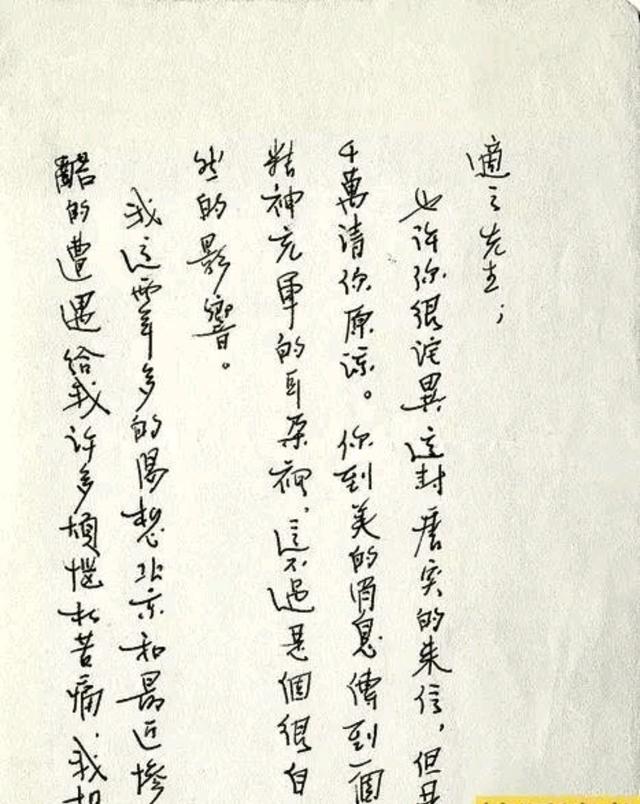 適之先生；
也许你很詫異這封唐突的来信，但是
千萬请你原谅。你到美的消息傳到一個
精神充軍的耳朵裡，這不过是個很自
然的影響。
我這两年多的渴想北京和最近慘
酷的遭遇给我许多烦恼和苦痛，我